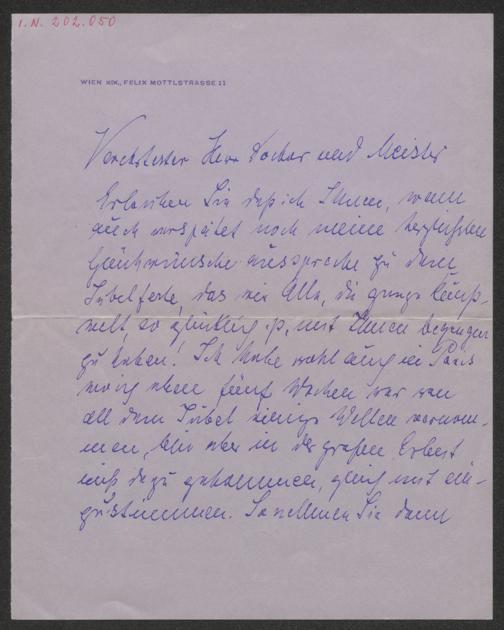 I.N. 202.050
WIEN XIX., FELIX MOTTLSTRASSE 11
Verehrtester Herr Doktor und Meister
Erlauben Sie daß ich Ihnen, wenn
auch verspätet noch meine herzlichsten
Glückwünsche ausspreche zu dem
Jubelfeste, das wir Alle, die ganze Kunst-
welt so glücklich ist, mit Ihnen begangen
zu haben! Ich habe wohl auch in Paris
wo ich eben fünf Wochen war von
all dem Jubel einige Wellen vernom-
men, bin aber in der großen Arbeit
nicht dazu gekommen, gleich mit ein-
zustimmen. So nehmen Sie denn